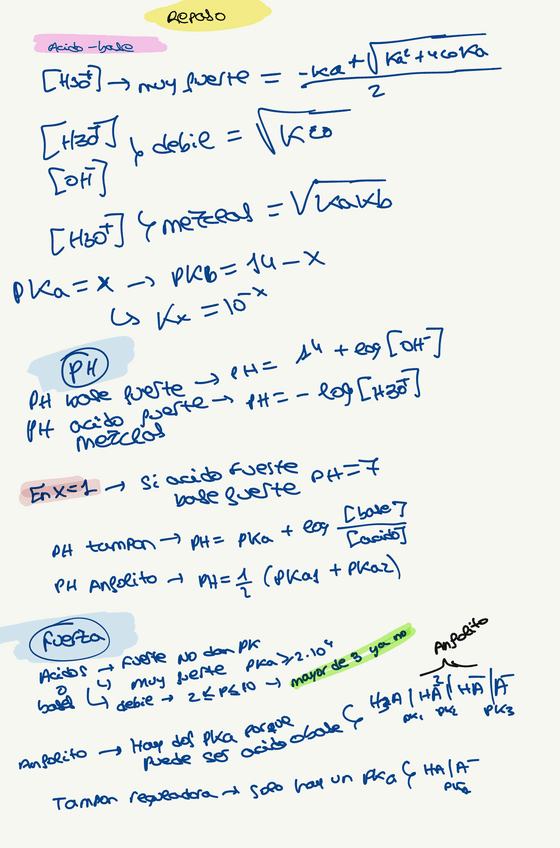 Repaso
Acido-base
[H3O⁺] → muy fuerte = -Ka + √Ka² + 4CoKa / 2
[H3O⁺]
[OH⁻] ↳ debile = √KCo
[H3O⁺] ↳ mezclas = √KaKb
PKa = x → PKb = 14 - x
↳ Kx = 10⁻ˣ
PH
PH base fuerte → PH = 14 + log [OH⁻]
PH acido fuerte → PH = - log [H3O⁺]
mezclas
En x=1 → Si acido fuerte PH=7
base fuerte
PH tampon → PH = PKa + log [base] / [acido]
PH Anfolito → PH = 1/2 (PKa1 + PKa2)
Fuerza
Acidos → fuerte No dan PK
o ↳ muy fuerte PKa ≥ 2·10⁴
bases ↳ debile → 2 ≤ P ≤ 10 → mayor de 3 ya no
Anfolito
Anfolito → Hay dos PKa porque
puede ser acido o base ↳ H3A | HA² | HA⁻ | A⁻
PK1 PK2 PK3
Tampon reguladora → solo hay un PKa ↳ HA | A⁻